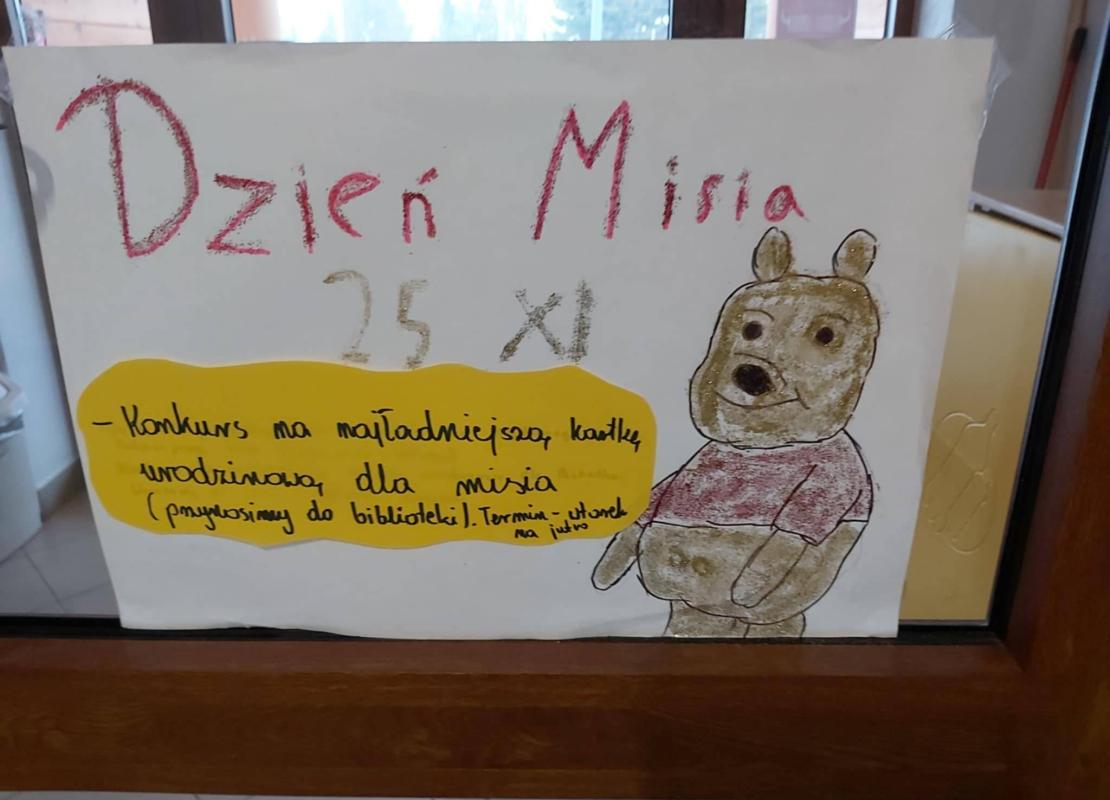 Dzień Misia
25 XI
- Konkurs na najładniejszą kartkę
urodzinową dla misia
(przynosimy do biblioteki). Termin - wtorek
na jutro